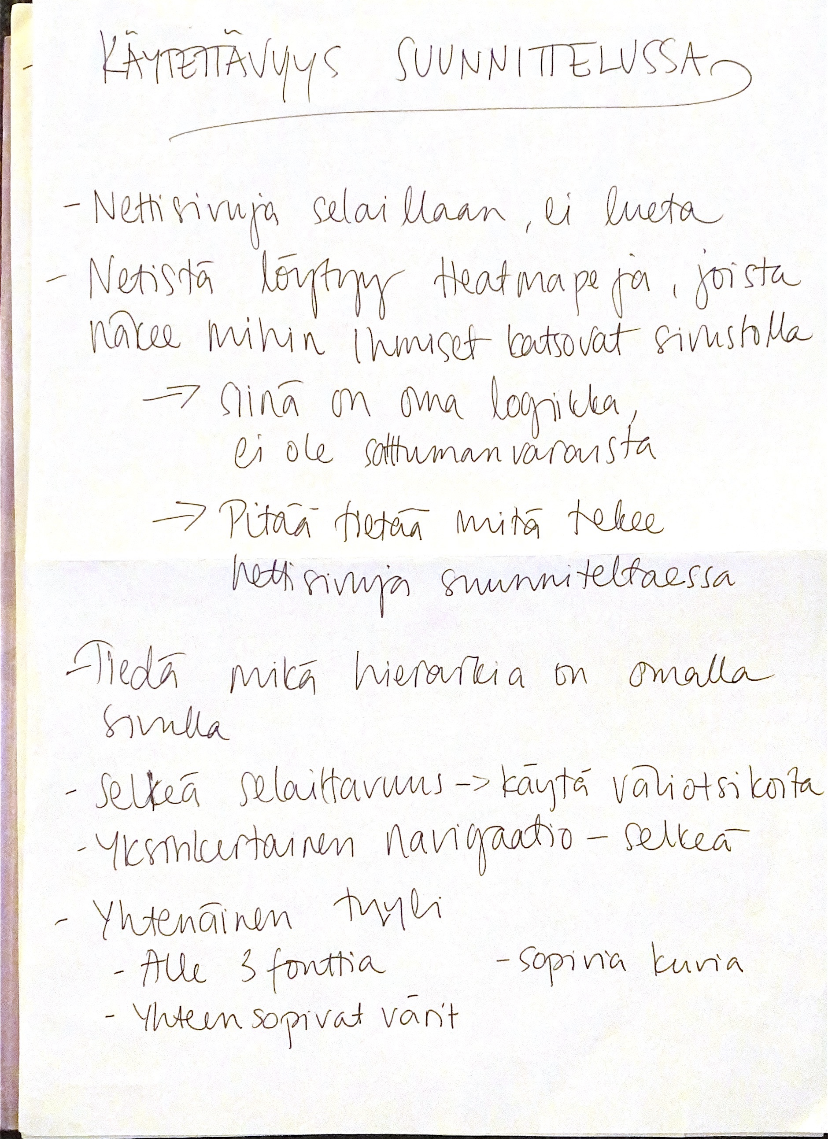 KÄYTETTÄVYYS SUUNNITTELUSSA
- Nettisivuja selaillaan, ei lueta
- Netistä löytyy Heatmapeja, joista
näkee mihin ihmiset katsovat sivustolla
→ Siinä on oma logiikka,
ei ole sattumanvaraista
→ Pitää tietää mitä tekee
nettisivuja suunniteltaessa
- Tiedä mikä hierarkia on omalla
sivulla
- Selkeä selailtavuus -> käytä väliotsikoita
- Yksinkertainen navigaatio - selkeä
- Yhtenäinen tyyli
- Alle 3 fonttia - sopivia kuvia
- Yhteensopivat värit